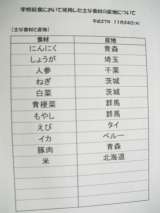 学校給食において使用した主な食材の産地について
平成27年 11月24日(火)
(主な食材と産地)
食材 産地
にんにく 青森
しょうが 埼玉
人参 千葉
ねぎ 茨城
白菜 茨城
青梗菜 群馬
もやし 群馬
えび タイ
イカ ペルー
豚肉 青森
米 北海道